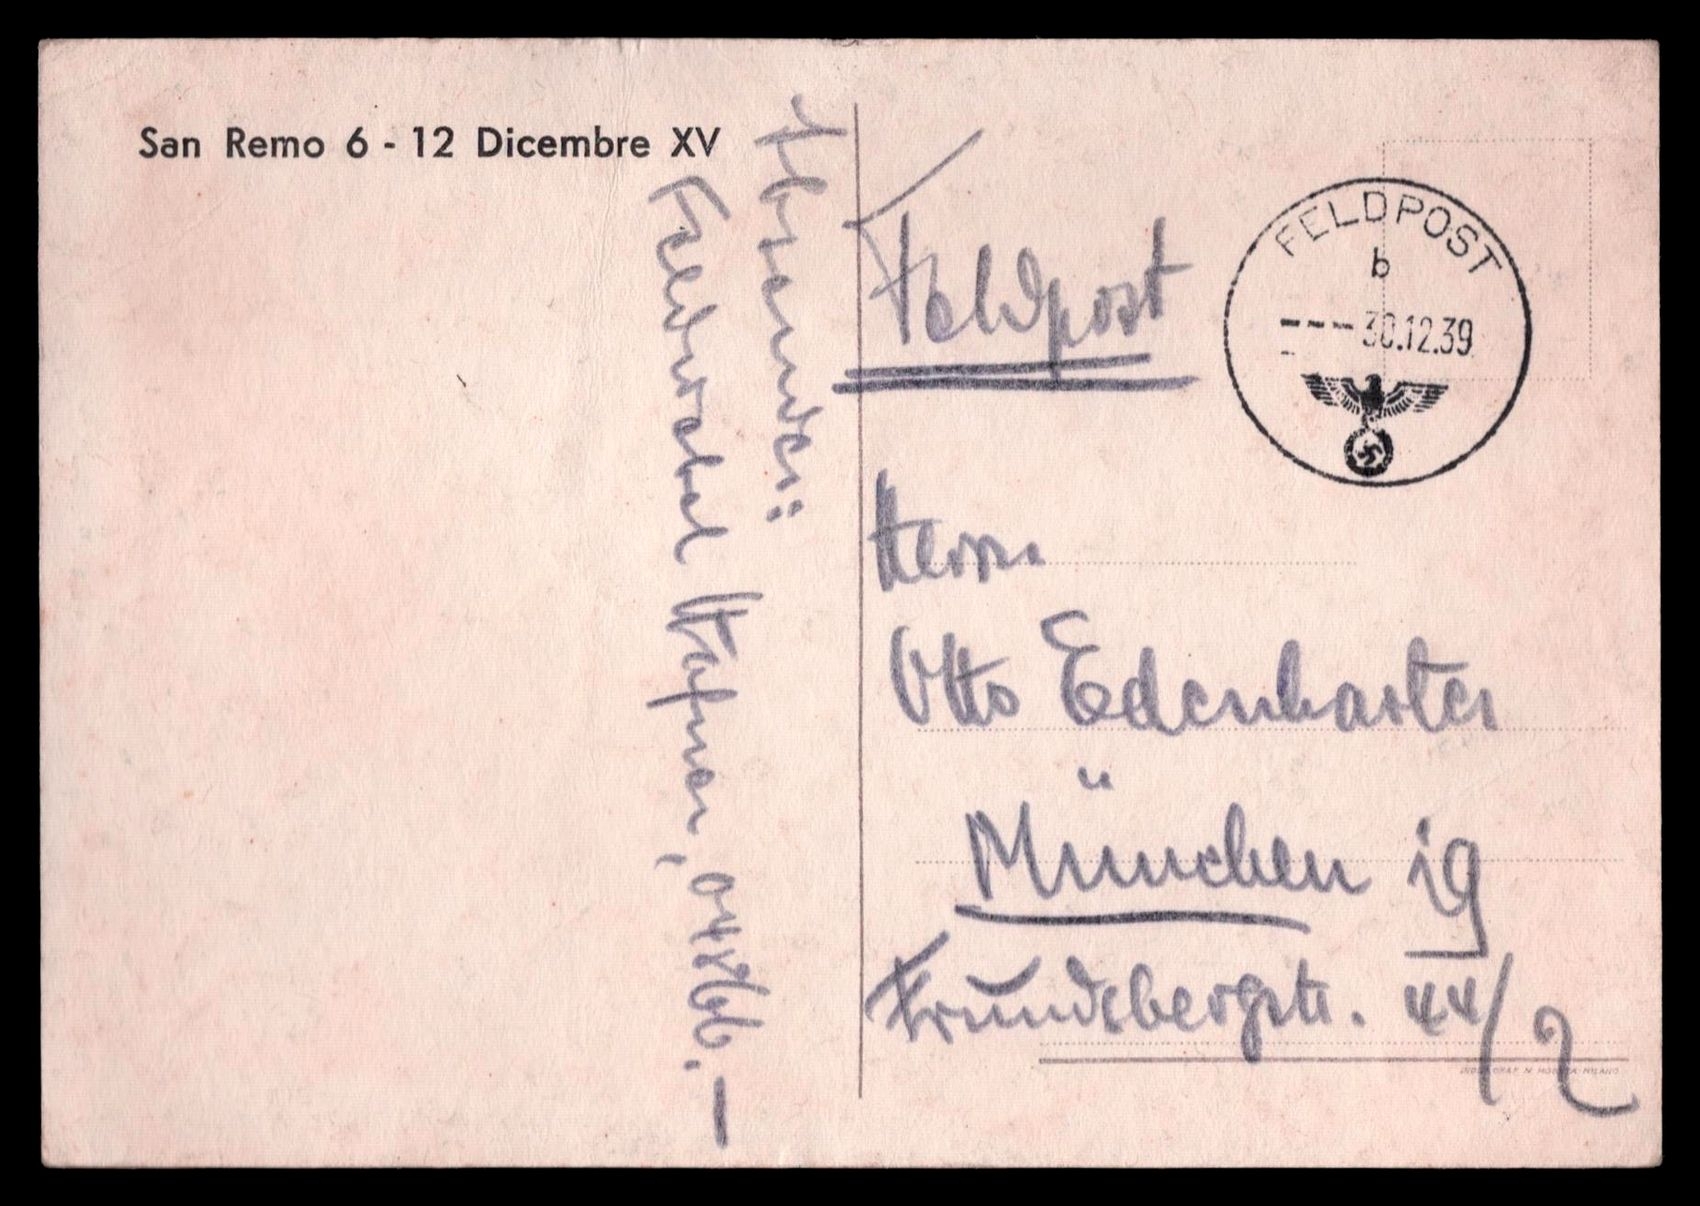 San Remo 6 - 12 Dicembre XV
Absender:
Feldwebel Hafner, 04866.-
Feldpost
FELDPOST
b
--- 30.12.39
Herrn
Otto Edenharter
München 19
Frundsbergstr. 44/2
MILANO